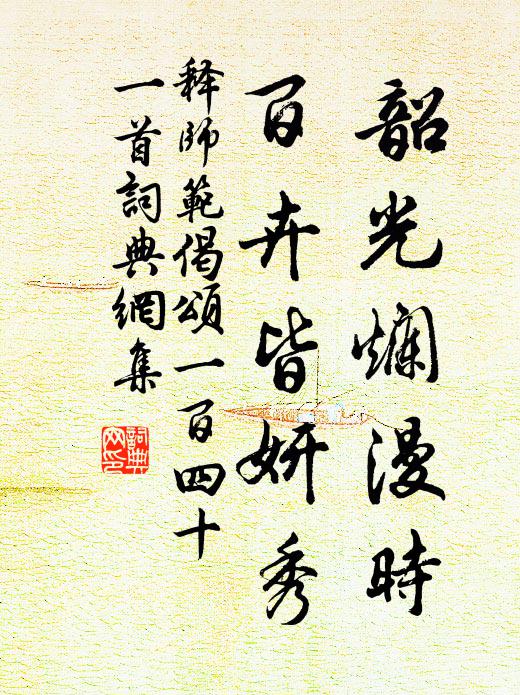 韶光爛漫時
百卉皆妍秀
释師範偈頌一百四十
一首詞典網集
詞典